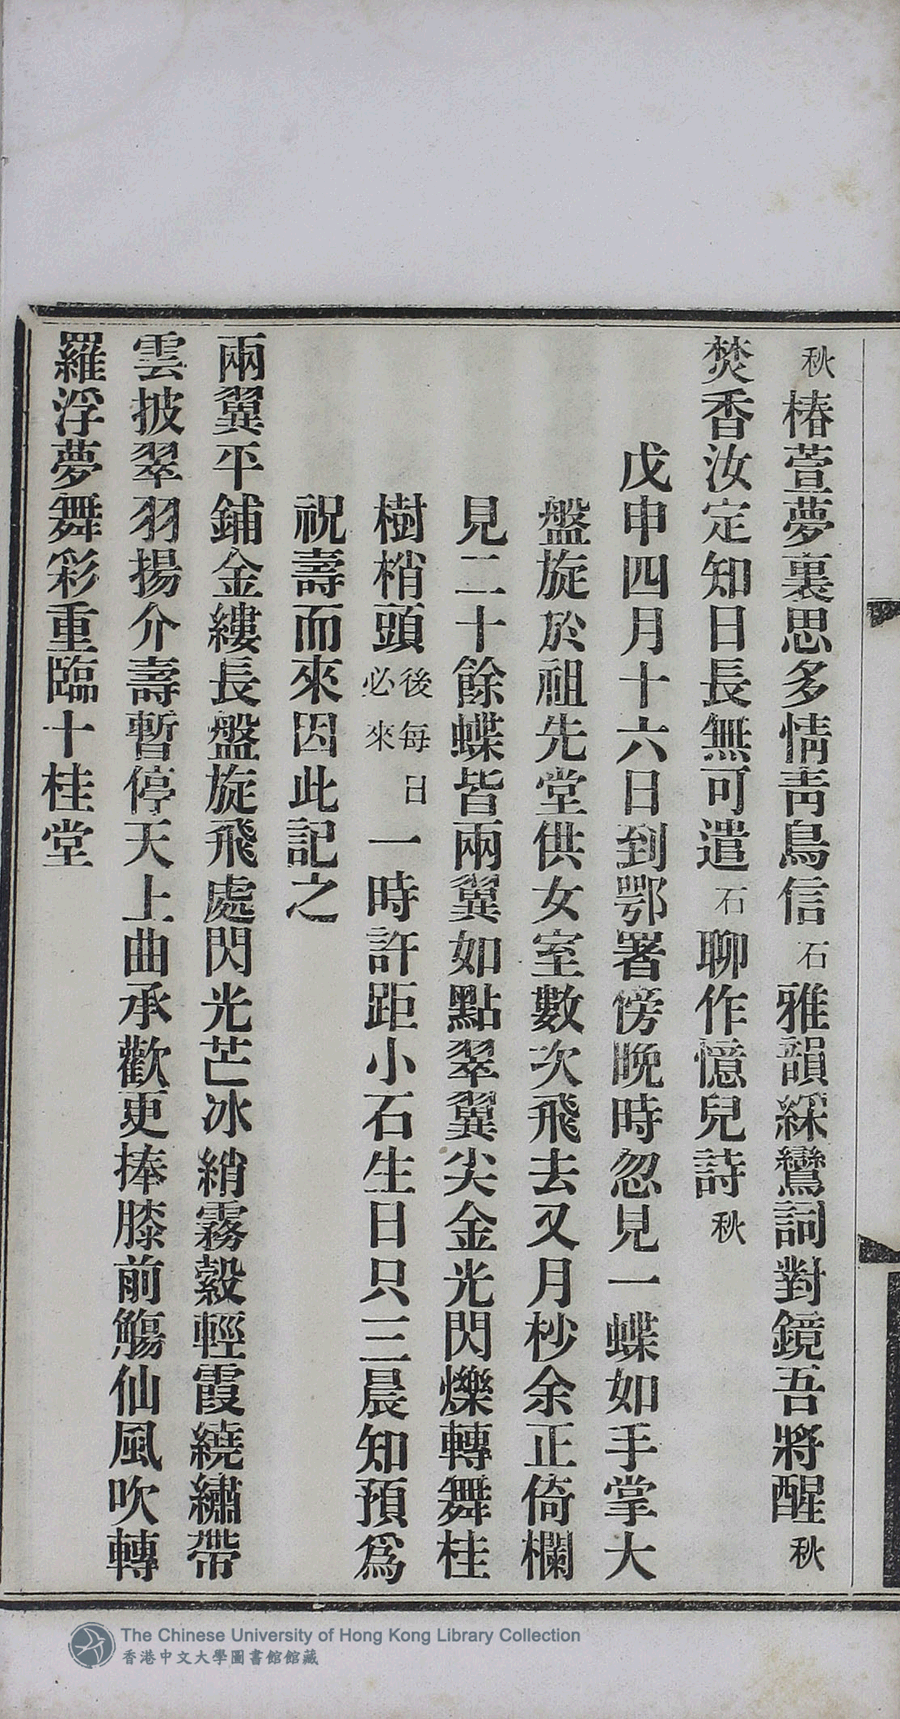 秋椿萱夢裏思多情靑鳥信石雅韻綵鸞詞對鏡吾將醒秋
焚香汝定知日長無可遣石聊作憶兒詩秋
戊申四月十六日到鄂署傍晚時忽見一蝶如手掌大
盤旋於祖先堂供女室數次飛去又月杪余正倚欄
見二十餘蝶皆兩翼如點翠翼尖金光閃爍轉舞桂
樹梢頭後每日必來一時許距小石生日只三晨知預爲
祝壽而來因此記之
兩翼平鋪金縷長盤旋飛處閃光芒冰綃霧縠輕霞繞繡帶
雲披翠羽揚介壽暫停天上曲承歡更捧膝前觴仙風吹轉
羅浮夢舞彩重臨十桂堂
The Chinese University of Hong Kong Library Collection
香港中文大學圖書館館藏